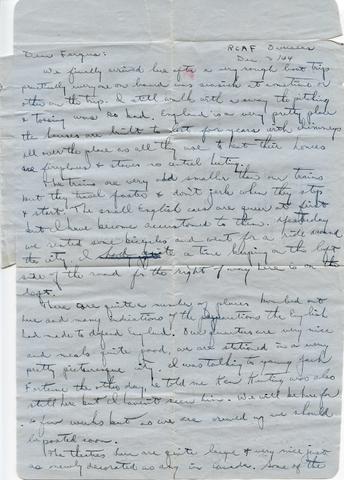 Dear Fergus:
RCAF Overseas
Dec. /44
We finally arrived here after a very rough boat trip
practically everyone on board was seasick at sometime or
other on the trip. I still walk with a sway the pitching
& tossing was so bad. England is a very pretty place
the houses are built to last for years with chimneys
all over the place as all they use to heat their houses
are fireplaces & stoves no central heating.
The trains are very odd smaller than our trains
but they travel faster & don't jerk when they stop
& start. The small English cars are queer at first
but I have become accustomed to them. Yesterday
we rented some bicycles and went for a ride around
the city, I a time keeping on the left
side of the road for the right of way here is on the
left.
There are quite a number of places bombed out
here and many indications of the preparations the English
had made to defend England. Our quarters are very nice
and meals quite good, we are stationed in a very
pretty picturesque city. I was talking to young Jack
Fortune the other day, he told me Ken was also
still here but I haven't seen him. We will be here for
a few weeks but as we are crewed up we should
be posted soon.
The theatres here are quite large & very nice just
as newly decorated as any in Canada. Some of the